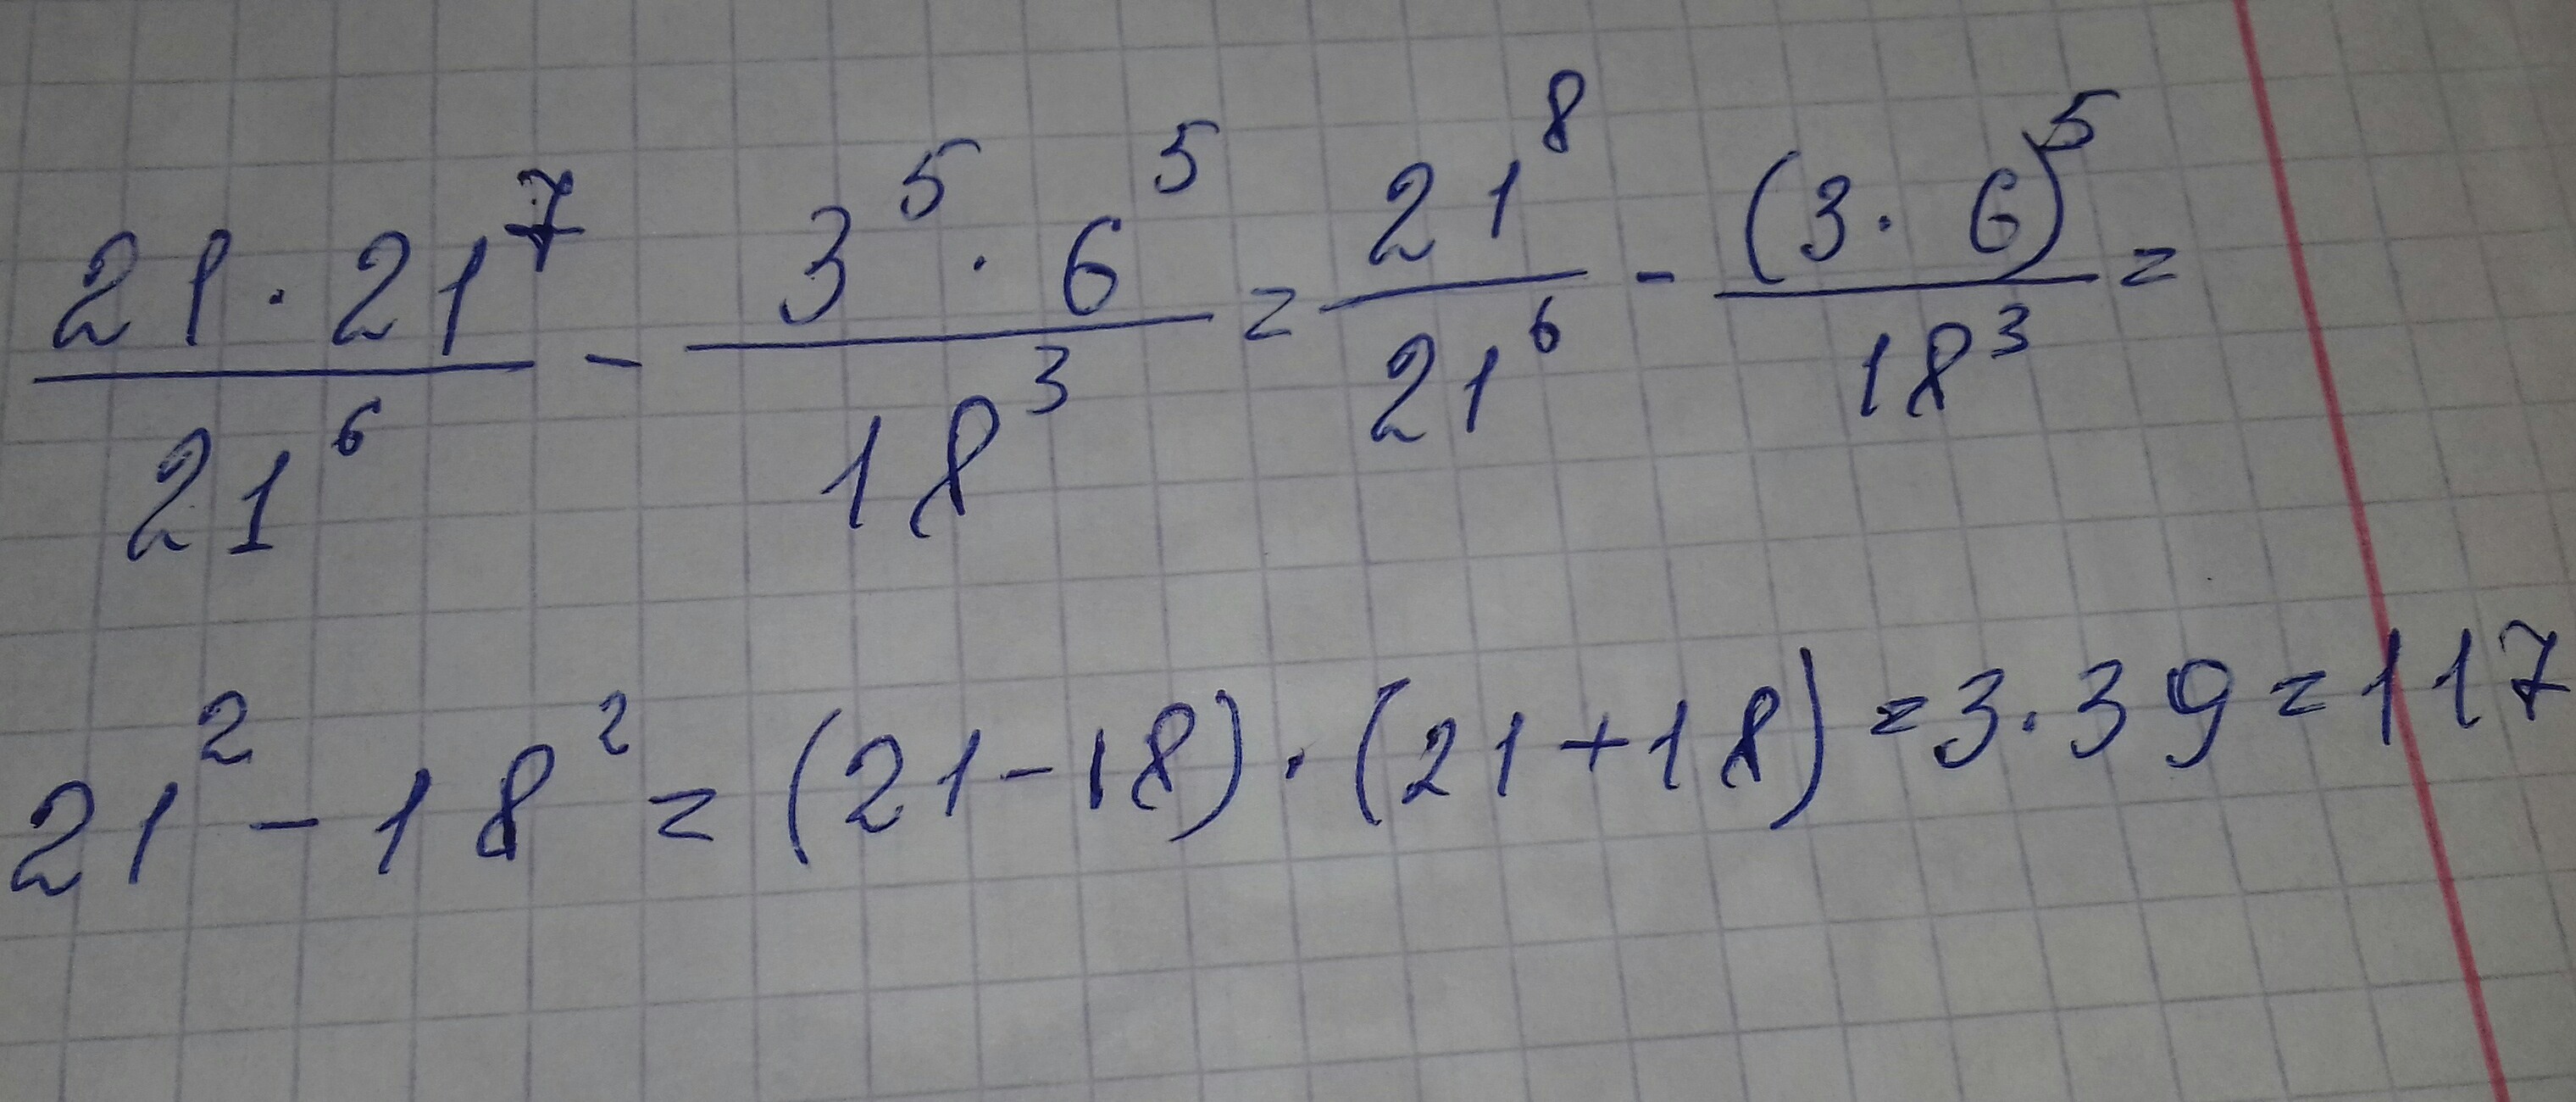 (21 · 21⁷)/21⁶ - (3⁵ · 6⁵)/18³ = 21⁸/21⁶ - (3 · 6)⁵/18³ =
21² - 18² = (21 - 18) · (21 + 18) = 3 · 39 = 117